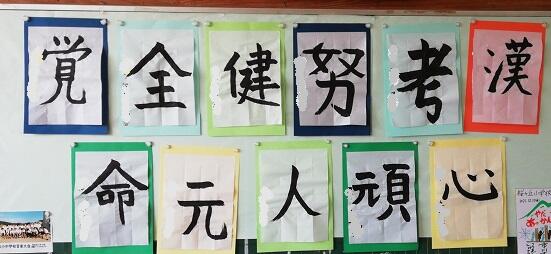 覚 全 健 努 考 漢
命 元 人 頑 心